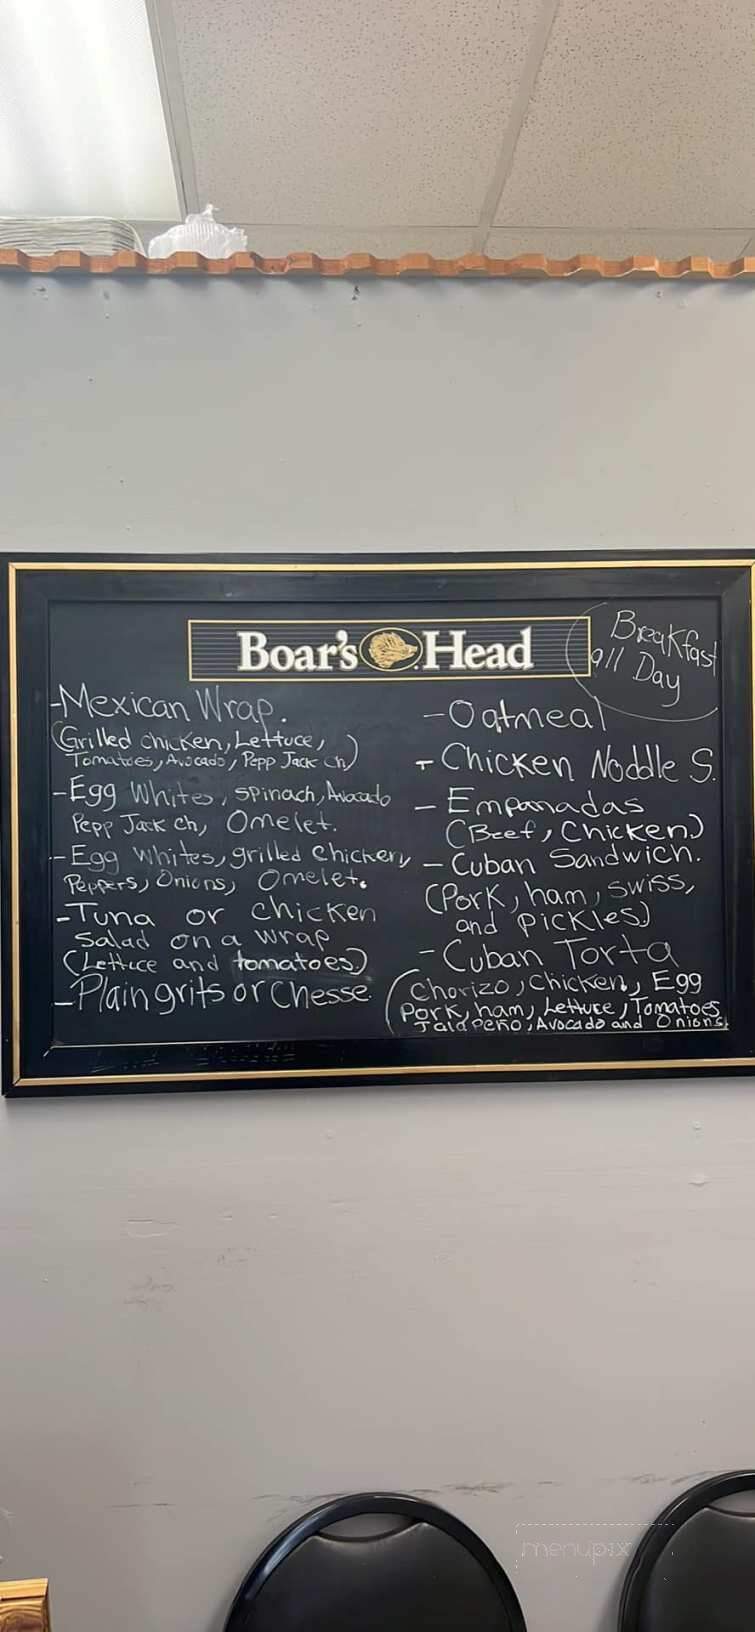 Boar's Head
Breakfast
all Day
-Mexican Wrap.
(Grilled chicken, Lettuce,
Tomatoes, Avocado, Pepp Jack ch)
-Egg Whites, spinach, Avocado
Pepp Jack ch, Omelet.
-Egg Whites, grilled chicken,
Peppers, Onions, Omelet.
-Tuna or chicken
salad on a wrap
(Lettuce and tomatoes)
-Plain grits or Chesse.
-Oatmeal
-Chicken Noddle S.
-Empanadas
(Beef, Chicken)
-Cuban Sandwich.
(Pork, ham, swiss,
and Pickles)
-Cuban Torta
(Chorizo, Chicken, Egg
Pork, ham, Lettuce, Tomatoes
Jalapeño, Avocado and Onions
menupix